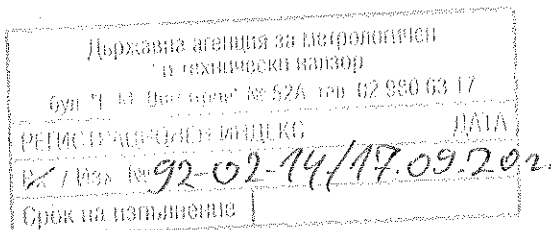 Държавна агенция за метрологичен
и технически надзор
бул. "Г. М. Димитров" № 52А, тел. 02 980 63 17
РЕГИСТРАЦИОНЕН ИНДЕКС ДАТА
Вх / Изх. № 92-02-14/17.09.20г.
Срок на изпълнение